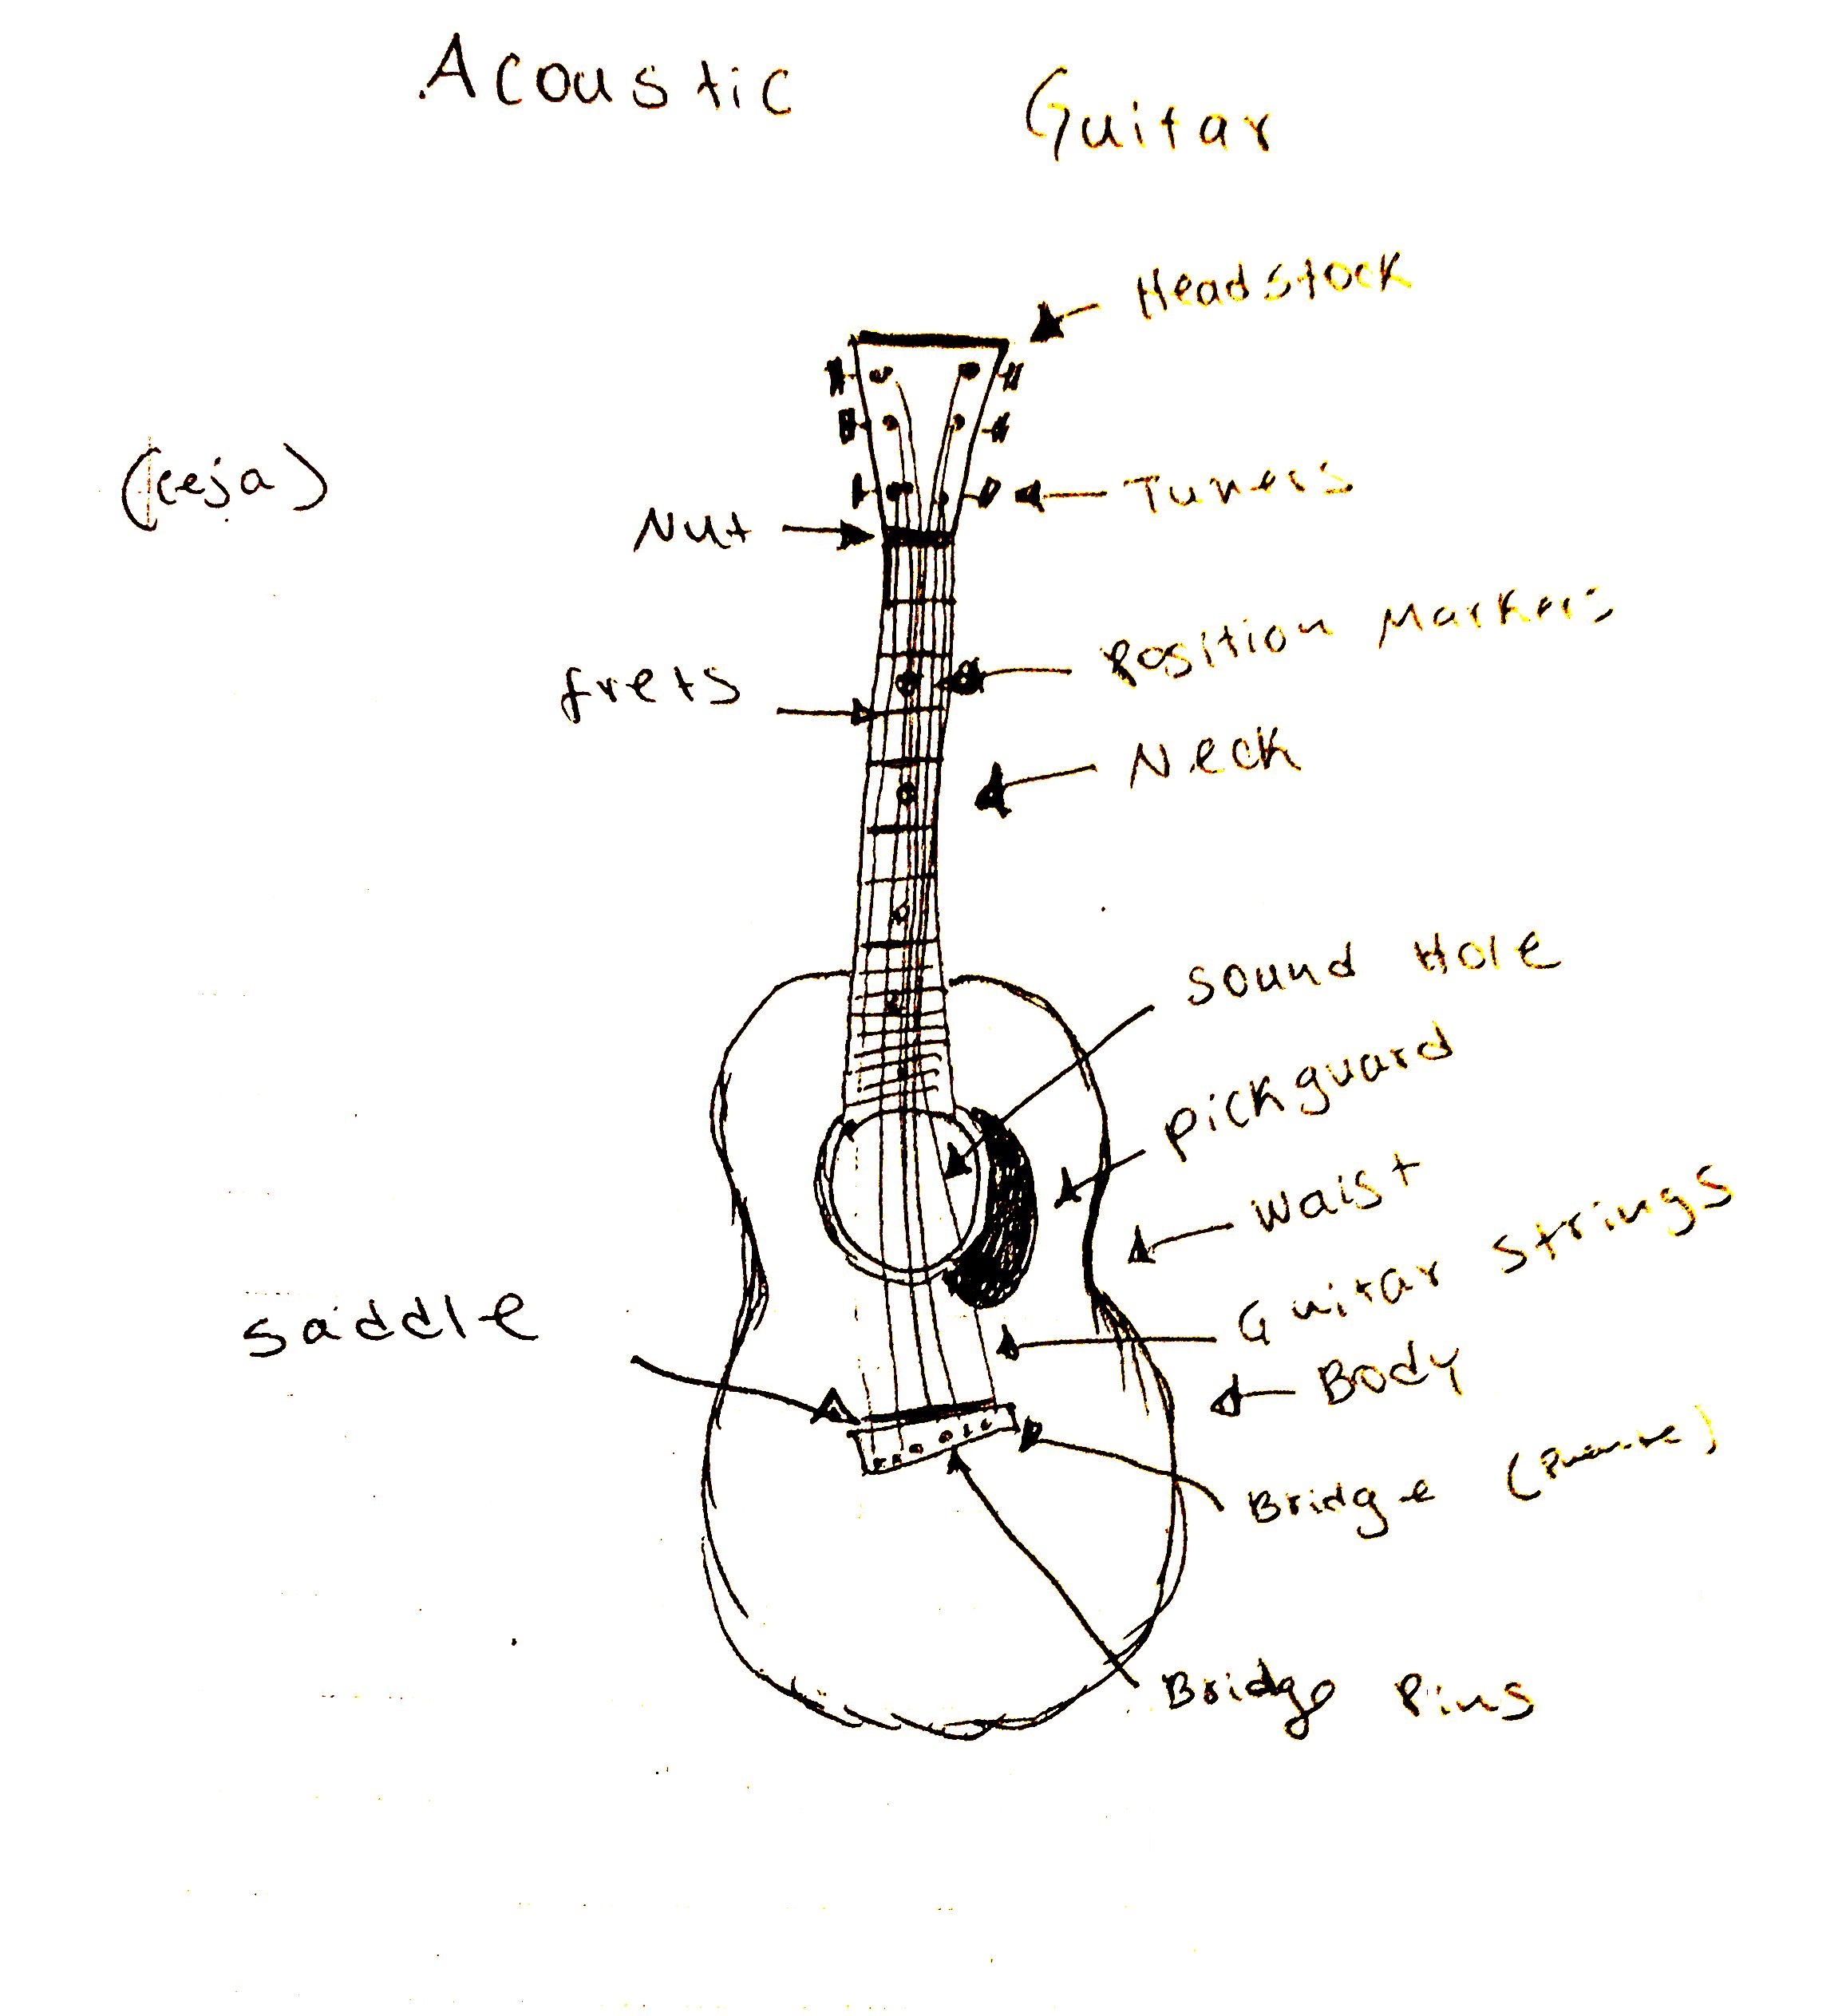 Acoustic Guitar
Headstock
(ceja)
Nut
Tuners
Position Markers
frets
Neck
Sound Hole
pickguard
waist
Guitar strings
saddle
Body
Bridge
Bridge Pins